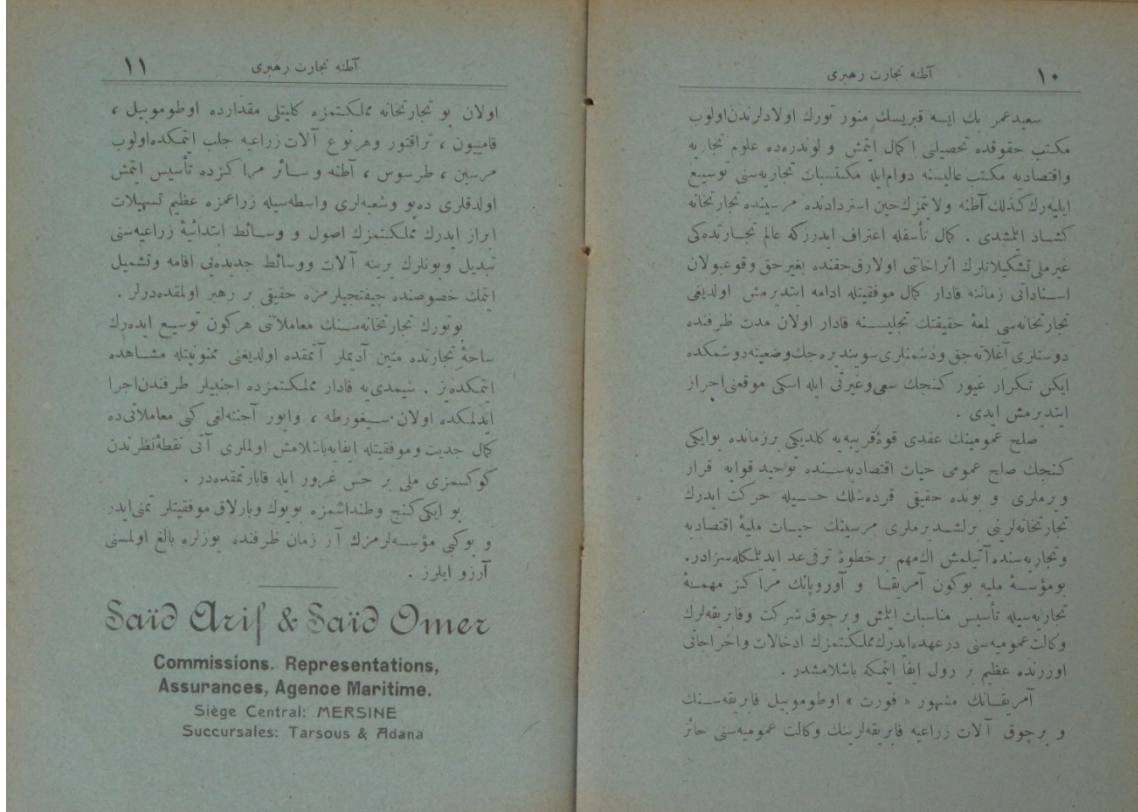 ١٠
آطنه تجارت رهبری
سعيدعمر بك ايسه قبريسك منور تورك اولادلرندن اولوب
مكتب حقوقده تحصيلنى اكمال ايتمش و لوندرهده علوم تجاريه
واقتصاديه مكتب عاليسنه دوام ايله مكتسبات تجاريه‌سنى توسيع
ايليه‌رك كذلك آطنه ولايتمزك حين استردادنده مرسينده تجارتخانه
كشاد ايتمشدى . كمال تأسفله اعتراف ايدرزكه عالم تجارتده‌كى
غيرملى تشكيلاتلرك اثراخانتى اولارق حقنده بغير حق وقوعبولان
اسناداتى زماننه قادار كمال موفقيتله ادامه ايتديرمش اولديغى
تجارتخانه‌سى لمعهٔ حقيقتك تجليسنه قادار اولان مدت ظرفنده
دوستلرى آغلاته‌جق ودشمنلرى سوينديره‌جك وضعيته دوشمكده
ايكن تكرار غيور كنجك سعى وغيرتى ايله اسكى موقعنى احراز
ايتديرمش ايدى .
صلح عمومينك عقدى قوهٔ قريبه‌يه كلديكى برزمانده بوايكى
كنجك صلح عمومى حيات اقتصاديه‌سنده توحيد قوايه قرار
ويرملرى و بونده حقيقى قرده‌شلك حسيله حركت ايدرك
تجارتخانه‌لرينى برلشديرملرى مرسينك حيات مليهٔ اقتصاديه
وتجاريه‌سنده آتيلمش اك مهم برخطوهٔ ترقى عد ايدلمكله سزادر.
بومؤسسهٔ مليه بوكون آمريقا و آوروپانك مراكز مهمهٔ
تجاريه‌سيله تأسيس مناسبات ايتمش وبرچوق شركت وفابريقه‌لرك
وكالت عموميه‌سنى درعهده ايدرك مملكتمزك ادخالات واخراجاتى
اوزرنده عظيم بر رول ايفا ايتمكه باشلامشدر .
آمريقانك مشهور « فورت » اوطوموبيل فابريقه‌سنك
و برچوق آلات زراعيه فابريقه‌لرينك وكالت عموميه‌سنى حائز
آطنه تجارت رهبرى
١١
اولان بو تجارتخانه مملكتمزه كليتلى مقدارده اوطوموبيل ،
قاميون ، تراقتور وهرنوع آلات زراعيه جلب ايتمكده اولوب
مرسين ، طرسوس ، آطنه وسائر مراكزده تأسيس ايتمش
اولدقلرى ده‌پو وشعبه‌لرى واسطه‌سيله زراعمزه عظيم تسهيلات
ابراز ايدرك مملكتمزك اصول و وسائط ابتدائيهٔ زراعيه‌سنى
تبديل وبونلرك يرينه آلات ووسائط جديده‌يى اقامه وتشميل
ايتمك خصوصنده چيفتجيلرمزه حقيقى بر رهبر اولمقده‌درلر .
بوتورك تجارتخانه‌سنك معاملاتى هركون توسيع ايده‌رك
ساحهٔ تجارتده متين آديملر آتمقده اولديغنى ممنونيتله مشاهده
ايتمكده‌يز . شيمدى‌يه قادار مملكتمزده اجنبيلر طرفندن اجرا
ايدلمكده اولان سيغورطه ، واپور آجنته‌لغى كبى معاملاتى‌ده
كمال جديت وموفقيتله ايفايه باشلامش اولملرى آتى نقطهٔ نظرندن
كوكسمزى ملى بر حس غرور ايله قابارتمقده‌در .
بو ايكى كنج وطنداشمزه بويوك وپارلاق موفقيتلر تمنى ايدر
و بوكبى مؤسسه‌لرمزك آز زمان ظرفنده يوزلره بالغ اولمسنى
آرزو ايلرز .
Saïd Arif & Saïd Omer
Commissions. Representations,
Assurances, Agence Maritime.
Siège Central: MERSINE
Succursales: Tarsous & Adana